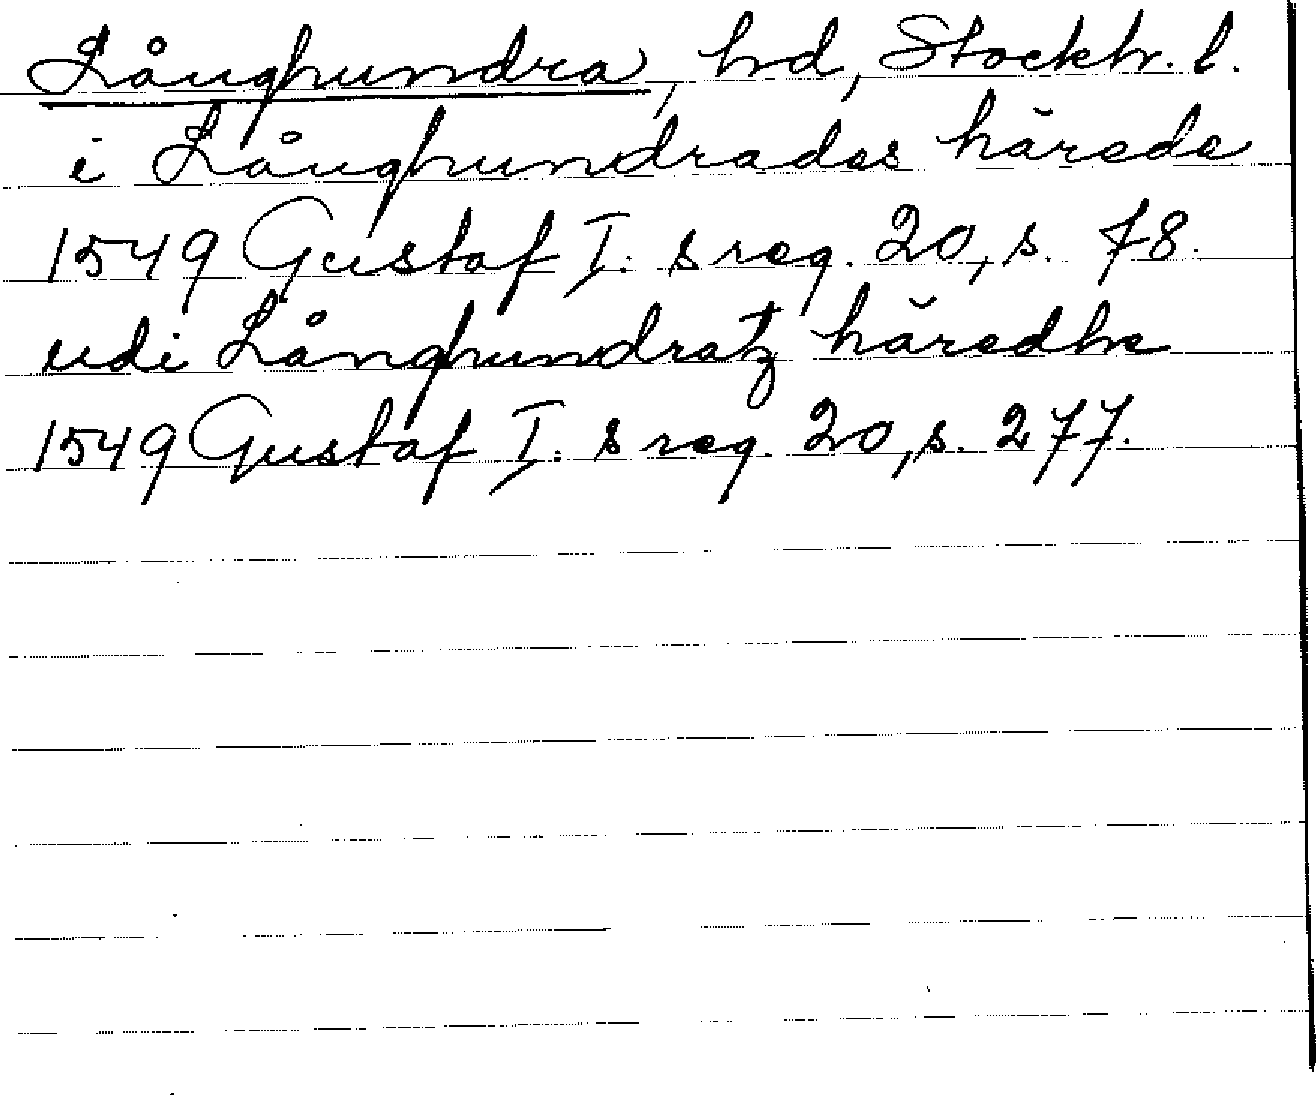 Långhundra, hd, Stockh. l.
i Långhundrades härede
1549 Gustaf I:s reg. 20, s. 78.
udi Långhundratz häredhe
1549 Gustaf I:s reg. 20, s. 277.